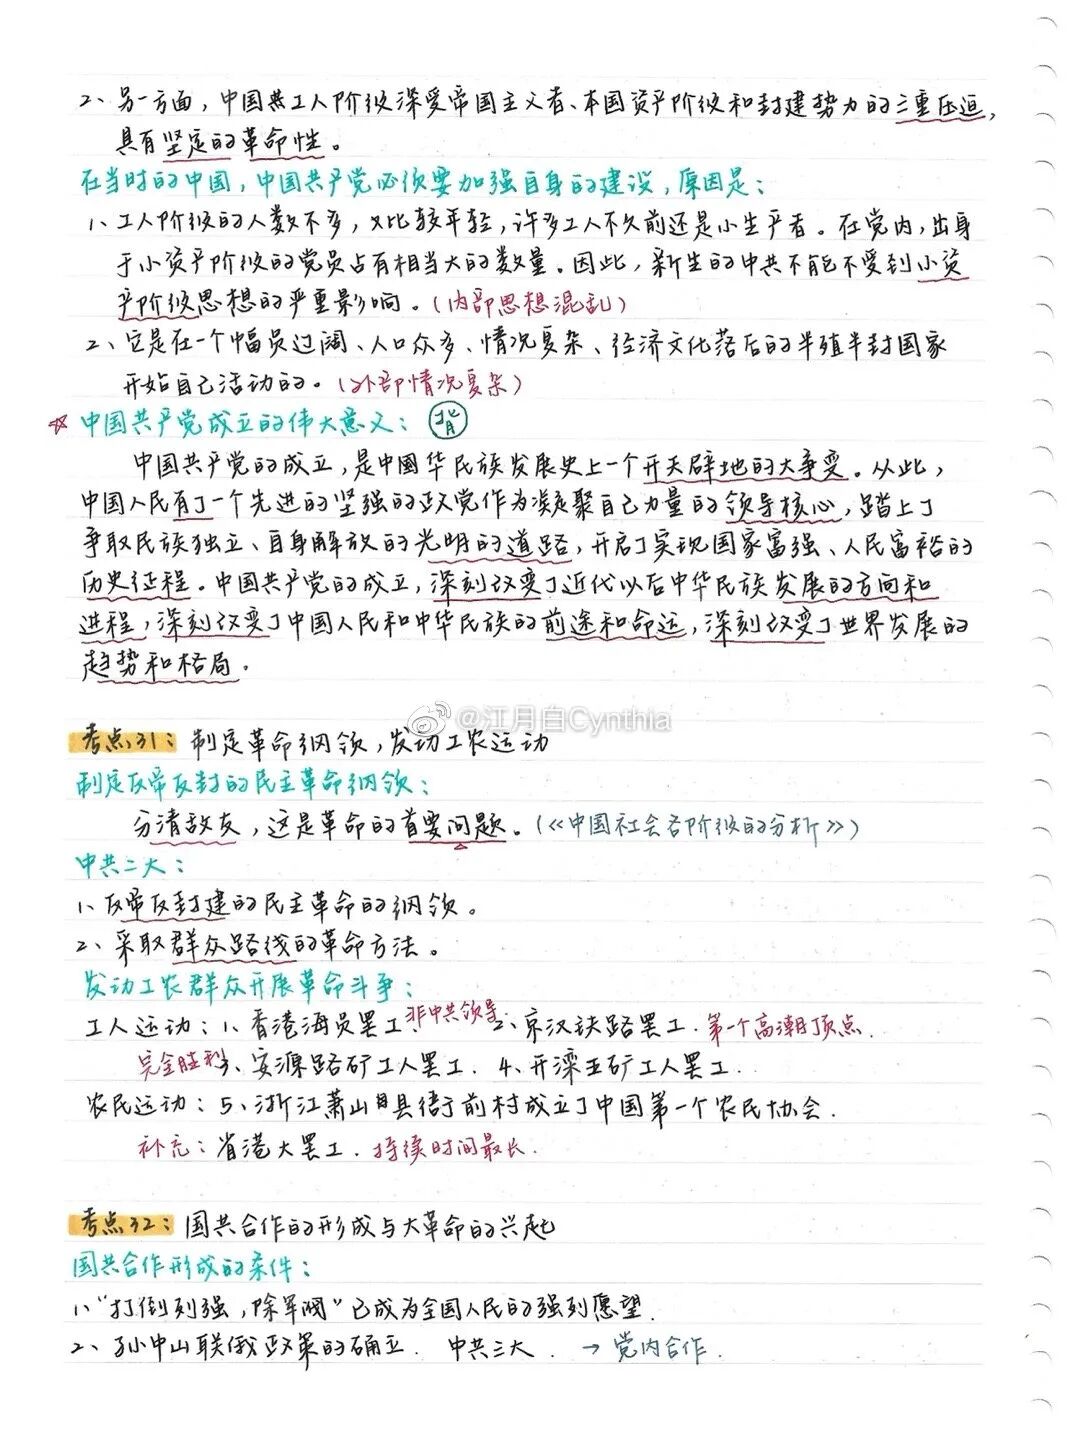 2、另一方面，中国共工人阶级深受帝国主义者、本国资产阶级和封建势力的三重压迫，
具有坚定的革命性。
在当时的中国，中国共产党必须要加强自身的建设，原因是：
1、工人阶级的人数不多，又比较年轻，许多工人不久前还是小生产者。在党内，出身
于小资产阶级的党员占有相当大的数量。因此，新生的中共不能不受到小资
产阶级思想的严重影响。（内部思想混乱）
2、它是在一个幅员辽阔、人口众多、情况复杂、经济文化落后的半殖半封国家
开始自己活动的。（外部情况复杂）
☆中国共产党成立的伟大意义：背
中国共产党的成立，是中国华民族发展史上一个开天辟地的大事变。从此，
中国人民有了一个先进的坚强的政党作为凝聚自己力量的领导核心，踏上了
争取民族独立、自身解放的光明的道路，开启了实现国家富强、人民富裕的
历史征程。中国共产党的成立，深刻改变了近代以后中华民族发展的方向和
进程，深刻改变了中国人民和中华民族的前途和命运，深刻改变了世界发展的
趋势和格局。
@江月白Cynthia
考点31：制定革命纲领，发动工农运动
制定反帝反封的民主革命纲领：
分清敌友，这是革命的首要问题。（《中国社会各阶级的分析》）
中共二大：
1、反帝反封建的民主革命的纲领。
2、采取群众路线的革命方法。
发动工农群众开展革命斗争：
工人运动：1、香港海员罢工 非中共领导 2、京汉铁路罢工．第一个高潮顶点．
完全胜利 3、安源路矿工人罢工．4、开滦五矿工人罢工．
农民运动：5、浙江萧山县衙于前村成立了中国第一个农民协会．
补充：省港大罢工．持续时间最长．
考点32：国共合作的形成与大革命的兴起
国共合作形成的条件：
1、“打倒列强，除军阀”已成为全国人民的强烈愿望．
2、孙中山联俄政策的确立．中共三大．→党内合作．